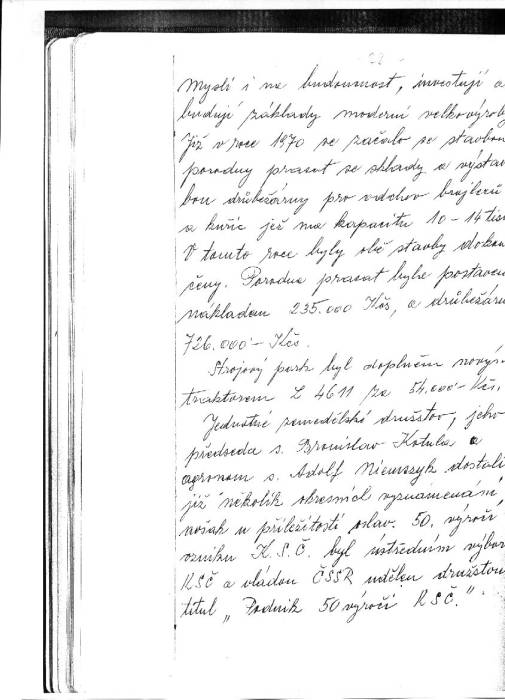 Myslí i na budoucnost, investují a
budují základy moderní velkovýroby
Již v roce 1970 se začalo se stavbou
porodny prasat se sklady a výstav
bou drůbežárny pro odchov brojlerů
a kuřic jež má kapacitu 10 - 14 tisí
V tomto roce byly obě stavby dokon
čeny. Porodna prasat byla postavena
nákladem 235.000 Kčs, a drůbežárn
726.000 - Kčs.
Strojový park byl doplněn novým
traktorem Z 4611 za 54.000 - Kčs.
Jednotné zemědělské družstov, jeho
předseda s. Bronislav Kotula a
agronom s. Adolf Niemszyk dostali
již několik okresních vyznamenání
však u příležitosti oslav. 50. výročí
vzniku K.S.Č. byl ústředním výbor
KSČ a vládou ČSSR udělen družstvu
titul „Podnik 50 výročí KSČ."